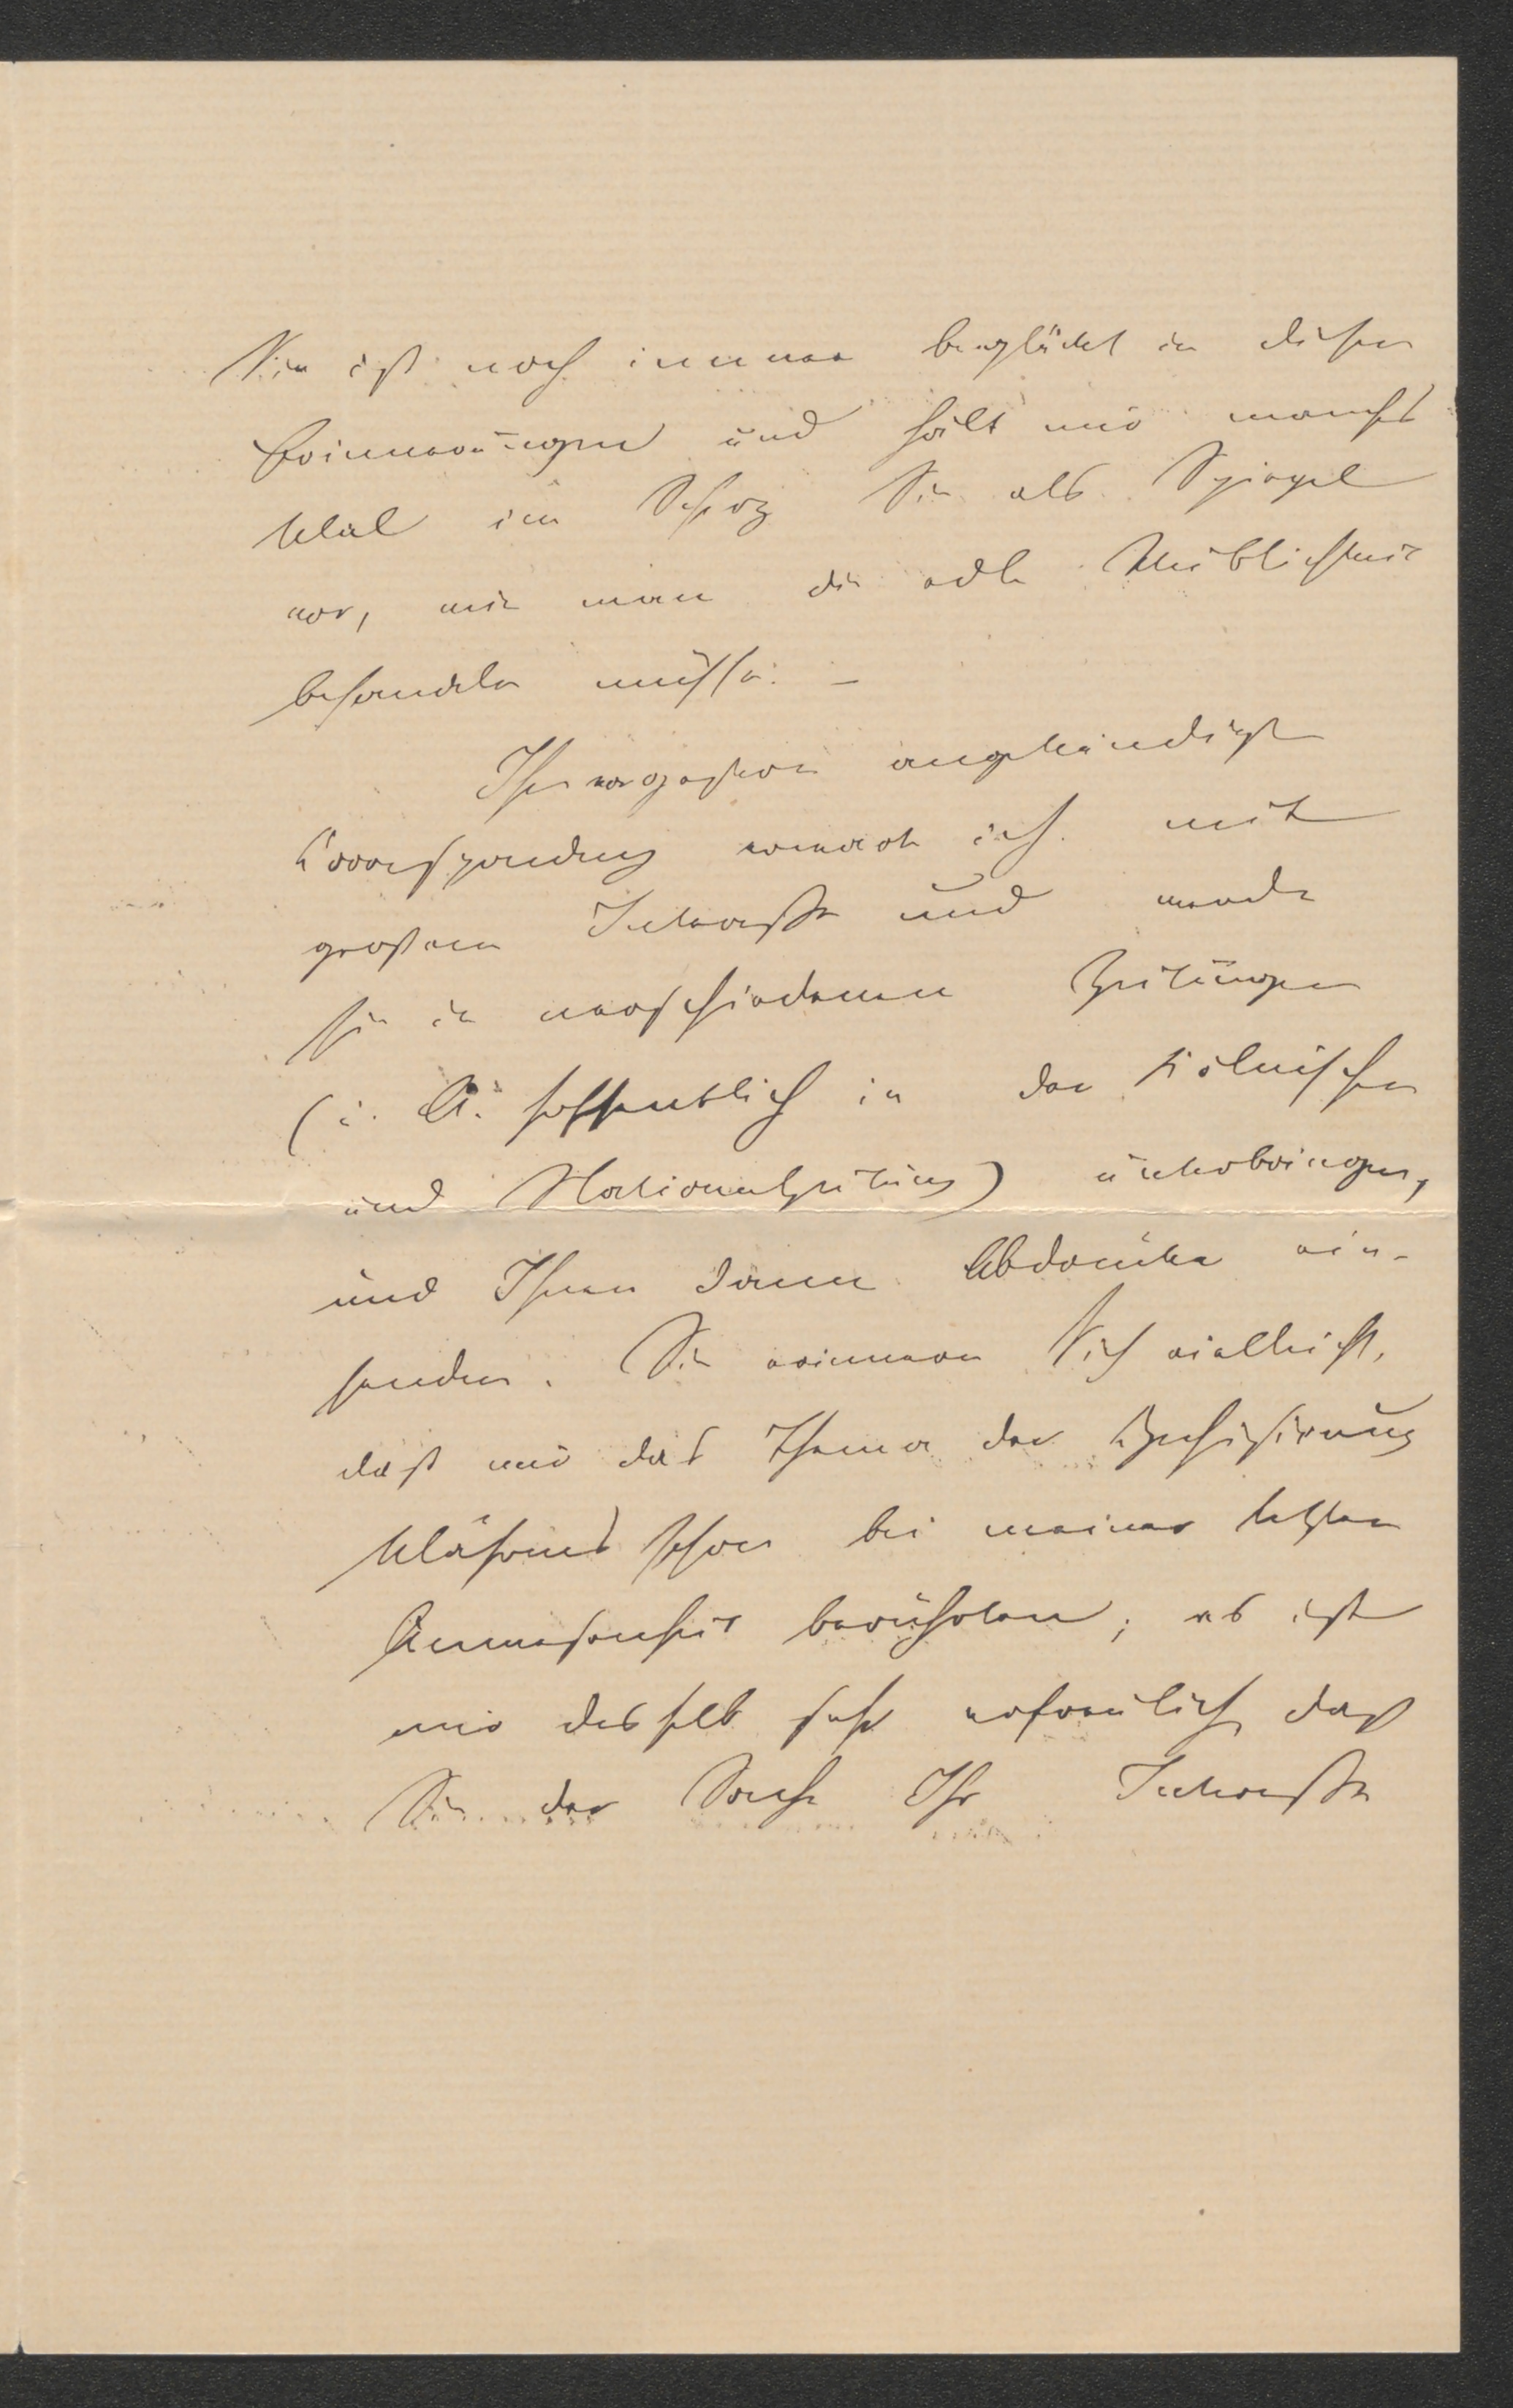 Sie ist noch immer beglückt in diesen
Erinnerungen und hält mir manches
Mal im Scherz Sie als Spiegel
vor, wie man die edle Weiblichkeit
behandeln müsse. –
Ihre vorgestern angekündigte
Korrespondenz erwarte ich mit
großem Interesse und werde
sie in verschiedenen Zeitungen
(u. A. hoffentlich in der Kölnischen
und Nationalzeitung) unterbringen,
und Ihnen dann Abdrücke ein-
senden. Sie erinnern Sich vielleicht,
daß wir das Thema der
Mährens schon bei meiner letzten
Anwesenheit berührten; es ist
mir deshalb sehr erfreulich daß
Sie der Sache Ihr Interesse